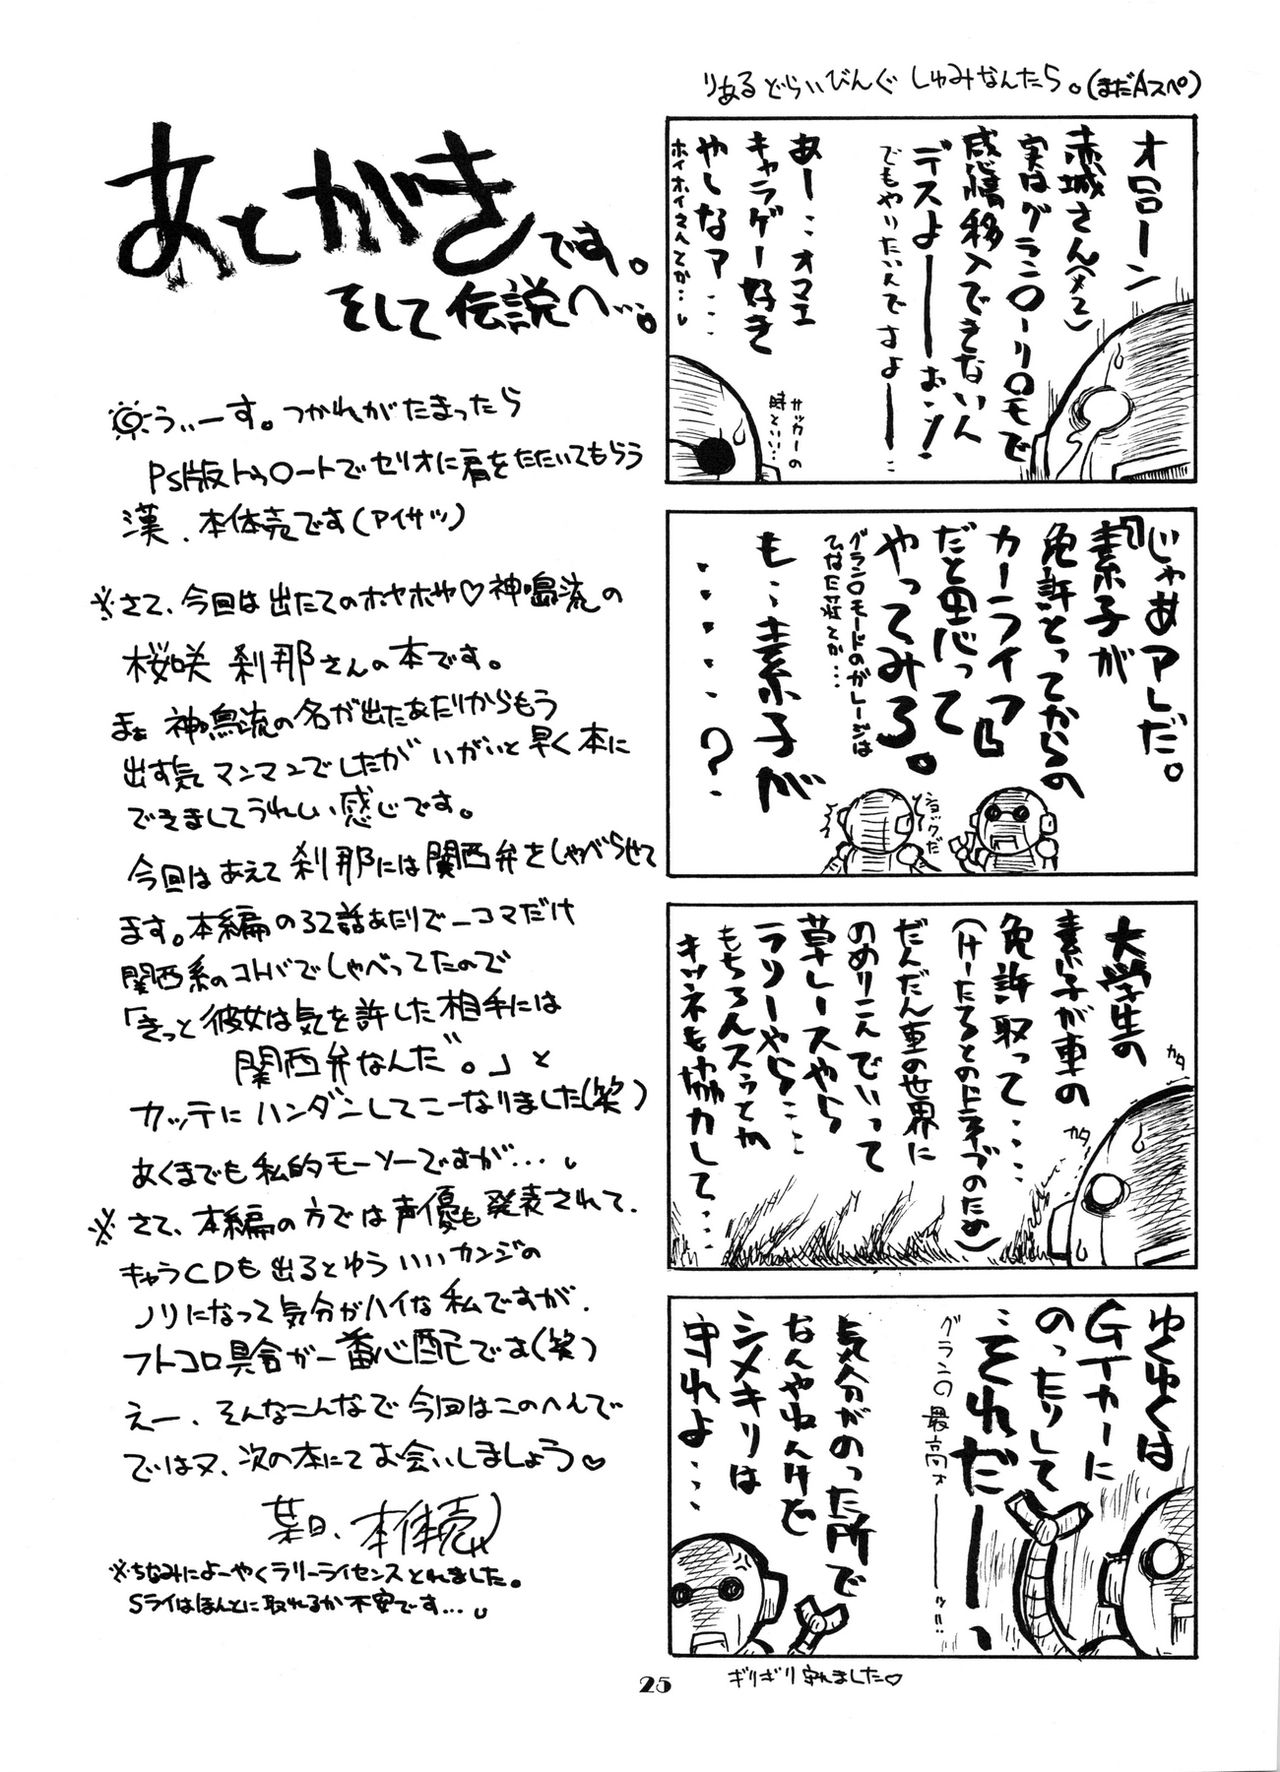 あとがきです。
そして伝説へ…。
うぃーす。つかれがたまったら
PS版トゥハートでセリオに肩をたたいてもらう
漢、本体売です(アイサツ)
※さて、今回は出たてのホヤホヤ♡神鳴流の
桜咲 刹那さんの本です。
まぁ 神鳴流の名が出たあたりからもう
出す気マンマンでしたが いがいと早く本に
できましてうれしい感じです。
今回はあえて刹那には関西弁をしゃべらせて
ます。本編の32話あたりで一コマだけ
関西系のコトバでしゃべってたので
「きっと彼女は気を許した相手には
関西弁なんだ。」と
カッテにハンダンしてこーなりました(笑)
あくまでも私的モーソーですが…。
※さて、本編の方では声優も発表されて、
キャラCDも出るとゆう いいカンジの
ノリになって気分がハイな私ですが、
フトコロ具合が一番心配です(笑)
えー、そんなこんなで今回はこのへんで
ではまた、次の本にてお会いしましょう♡
某日、本体売
※ちなみによーやくラリーライセンスとれました。
Sライはほんとに取れるか不安です…。
りある どらいびんぐ しゅみなんたら。(まだAスペ)
オローン
赤城さん(メマ)
実はグラン○ーリ○モで
感情移入できないん
デスよーーおン!
でもやりたいんですよーー…
あー…オマエ
キャラゲー好き
やしなァ…
ホイホイさんとか…。
サッカーの
時といい…
じゃあアレだ。
『素子が
免許とってからの
カーライフ』
だと思って
やってみろ。
グラン○モードのガレージは
ひなた荘とか…
も…素子が
・・・・?
ショックだ
大学生の
素子が車の
免許取って…
(けーたろとのドライブのため)
だんだん車の世界に
のめりこんでいって
草レースやら
ラリーやら…
もちろんスゥとか
キツネも協力して…
カタ
カタ
ゆくゆくは
GTカーに
のったりして
…それだーーっ
グランの最高ォーーーッ!!
気分がのった所で
なんやねんけど
シメキリは
守れよ…
ギリギリ守れました♡
25